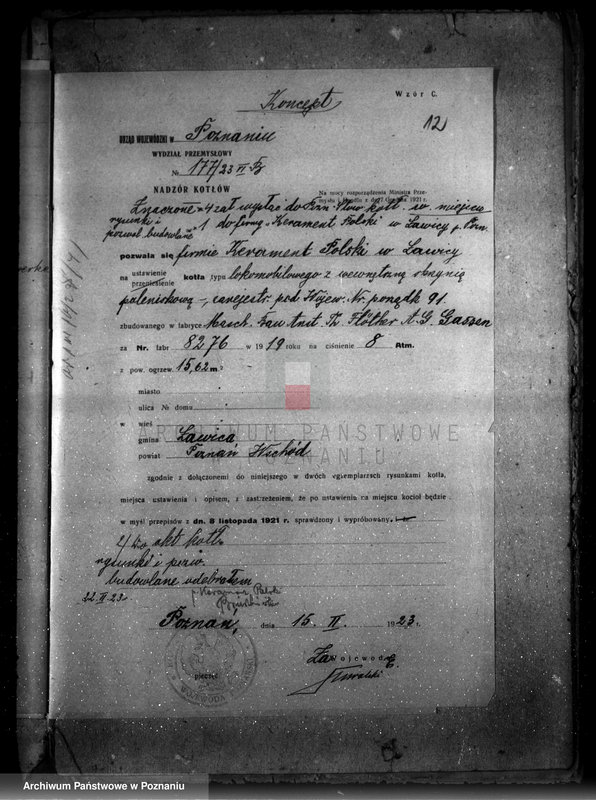 Wzór C.
Koncept
12
URZĄD WOJEWÓDZKI w Poznaniu
WYDZIAŁ PRZEMYSŁOWY
№ 177/23 II
NADZÓR KOTŁÓW
Na mocy rozporządzenia Ministra Prze-
mysłu i Handlu z dn.
1921 r.
Znaczone 4 zał wysłać do kotł. w miejscu
rysunki i 1 do firmy Kerament Polski w Ławicy p. Pozn.
pozwol. budowlane
pozwala się firmie Kerament Polski w Ławicy
na ustawienie kotła typu lokomobilowego z wewnętrzną skrzynią
przeniesienie
paleniskową, zarejestr. pod Wojew. Nr. porządk 91.
zbudowanego w fabryce Masch. Bau Anst. Th. Flöther A.G. Gassen
za Nr. fabr 8276 w 1919 roku na ciśnienie 8 Atm.
z pow. ogrzew. 15,62 m²
miasto
ulica № domu
w wieś
gmina Ławica
powiat Poznań Wschód
ARCHIWUM PAŃSTWOWE
W POZNANIU
zgodnie z dołączonemi do niniejszego w dwóch egzemplarzach rysunkami kotła,
miejsca ustawienia i opisem, z zastrzeżeniem, że po ustawieniu na miejscu kocioł będzie
w myśl przepisów z dn. 8 listopada 1921 r. sprawdzony i wypróbowany
akt kotł.
rysunki i
budowlane odebrałem
22.II.23.
p. Kerament Polski
Poznań, dnia 15. II. 1923 r.
Za Wojewodę
pieczęć
Archiwum Państwowe w Poznaniu